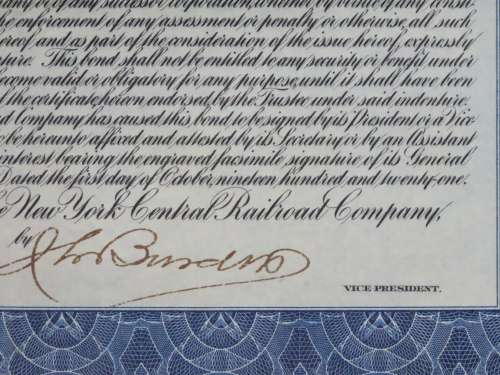 of any successor corporation, whether by virtue of any
the enforcement of any assessment or penalty or otherwise, all such
hereof and as part of the consideration of the issue hereof, expressly
This bond shall not be entitled to any security or benefit under
become valid or obligatory for any purpose, until it shall have been
the certificate hereon endorsed by the Trustee under said indenture.
Company has caused this bond to be signed by its President or a Vice
to be hereunto affixed and attested by its Secretary or by an Assistant
interest bearing the engraved facsimile signature of its General
Dated the first day of October, nineteen hundred and twenty-one.
New York Central Railroad Company,
by
VICE PRESIDENT.